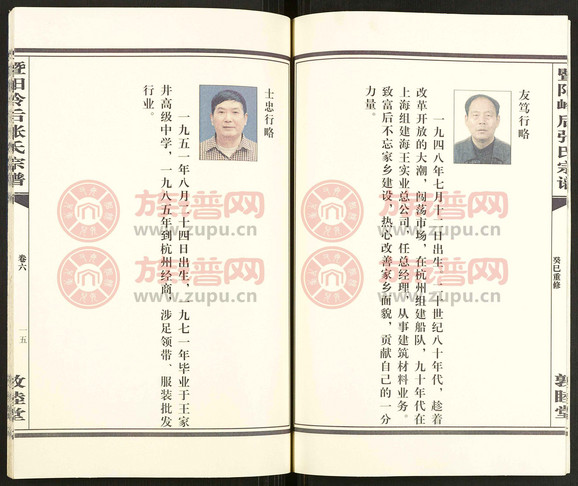 暨阳岭后张氏宗谱
癸巳重修
敦睦堂
友笃行略
一九四八年七月十二日出生，二十世纪八十年代，趁着
改革开放的大潮，闯荡市场，在杭州组建船队，九十年代在
上海组建海王实业总公司，任总经理，从事建筑材料业务。
致富后不忘家乡建设，热心改善家乡面貌，贡献自己的一分
力量。
士忠行略
一九五一年八月二十四日出生，一九七一年毕业于王家
井高级中学，一九八五年到杭州经商，涉足领带、服装批发
行业。
暨阳岭后张氏宗谱
卷六
一五
敦睦堂
族谱网
www.zupu.cn
族谱网
www.zupu.cn
族谱网
www.zupu.cn
族谱网
www.zupu.cn